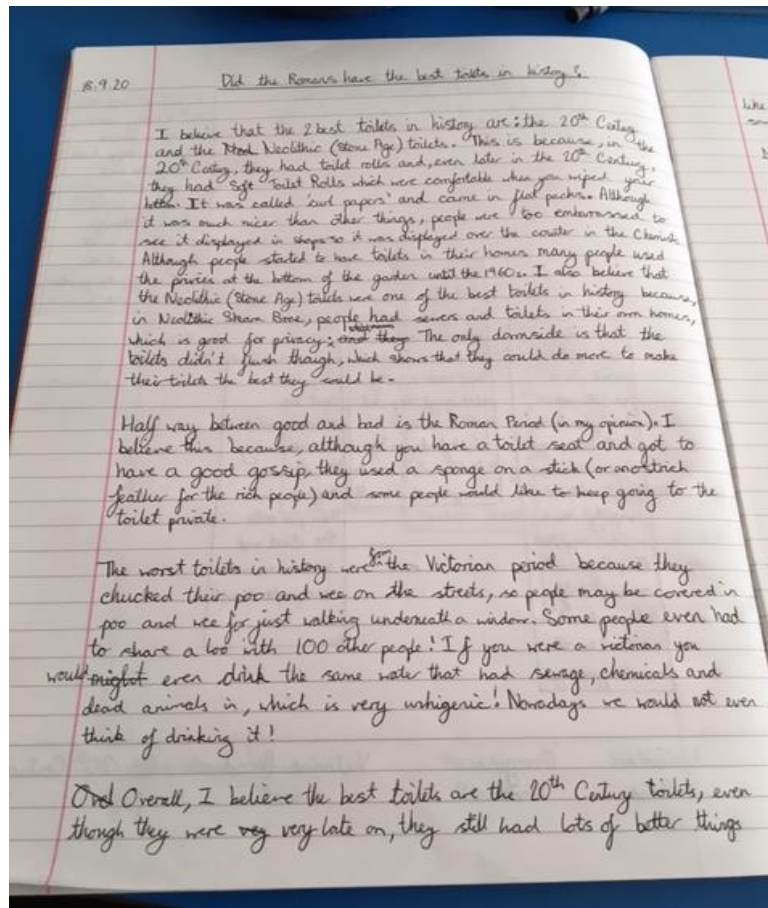 18.9.20
Did the Romans have the best toilets in history?
I believe that the 2 best toilets in history are: the 20th Century
and the Mod Neolithic (Stone Age) toilets. This is because, in the
20th Century, they had toilet rolls and, even later in the 20th Century,
they had Soft Toilet Rolls which were comfortable when you wiped your
It was called 'curl papers' and came in flat packs. Although
it was much nicer than other things, people were too embarrassed to
see it displayed in shops so it was displayed over the counter in the
Although people started to have toilets in their homes many people used
the privies at the bottom of the garden until the 1960s. I also believe that
the Neolithic (Stone Age) toilets were one of the best toilets in history because,
in Neolithic Skara Brae, people had sewers and toilets in their own homes,
which is good for privacy; and they The only downside is that the
toilets didn't flush though, which shows that they could do more to make
their toilets the best they could be.
Half way between good and bad is the Roman Period (in my opinion). I
believe this because, although you have a toilet seat and got to
have a good gossip, they used a sponge on a stick (or an ostrich
feather for the rich people) and some people would like to keep going to the
toilet private.
The worst toilets in history were the Victorian period because they
chucked their poo and wee on the streets, so people may be covered in
poo and wee for just walking underneath a window. Some people even had
to share a loo with 100 other people! If you were a victorian you
would might even drink the same water that had sewage, chemicals and
dead animals in, which is very unhigenic! Nowadays we would not even
think of drinking it!
Overall, I believe the best toilets are the 20th Century toilets, even
though they were very late on, they still had lots of better things
like